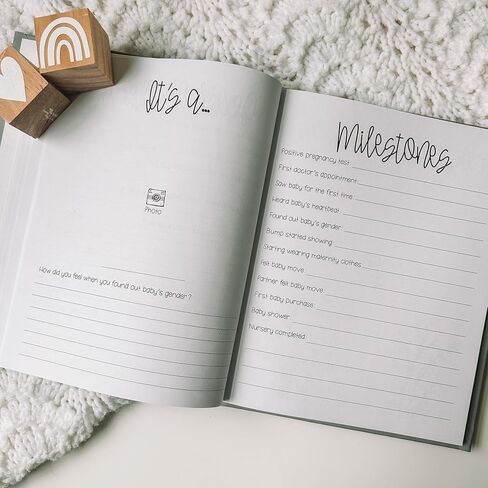 It's a...
Photo
How did you feel when you found out baby's gender?
Milestones
Positive pregnancy test
First doctor's appointment
Saw baby for the first time
Heard baby's heartbeat
Found out baby's gender
Bump started showing
Starting wearing maternity clothes
Felt baby move
Partner felt baby move
First baby purchase
Baby shower
Nursery completed